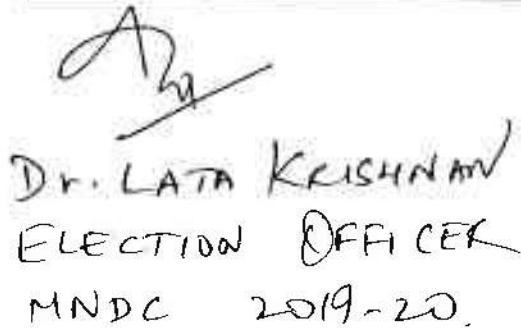 Dr. LATA KRISHNAN
ELECTION OFFICER
MNDC 2019-20.